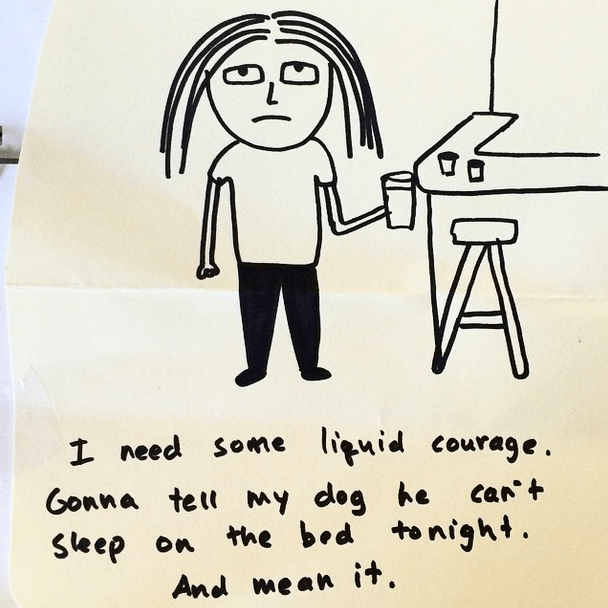 I need some liquid courage.
Gonna tell my dog he can't
sleep on the bed tonight.
And mean it.